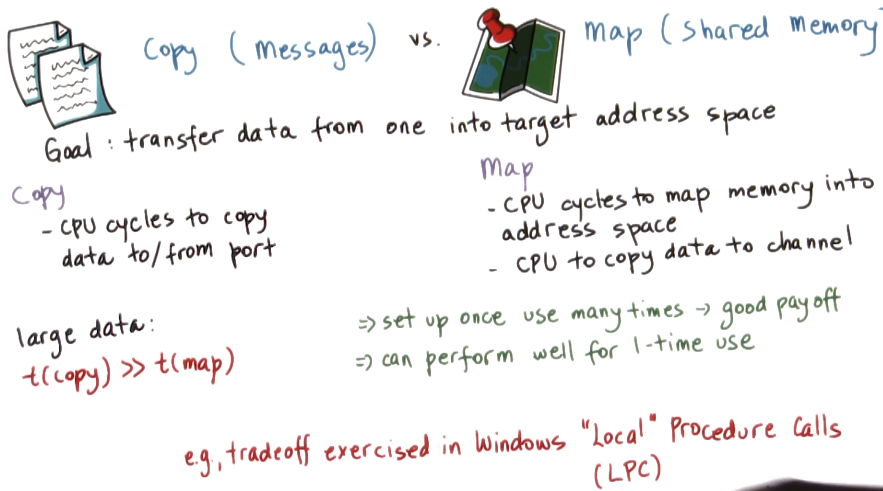 Copy (messages) vs. Map (shared memory
Goal : transfer data from one into target address space
Copy
- CPU cycles to copy
data to/from port
Map
- CPU cycles to map memory into
address space
- CPU to copy data to channel
large data:
t(copy) >> t(map)
⇒ set up once use many times → good payoff
⇒ can perform well for 1-time use
e.g., tradeoff exercised in Windows "Local" Procedure Calls
(LPC)